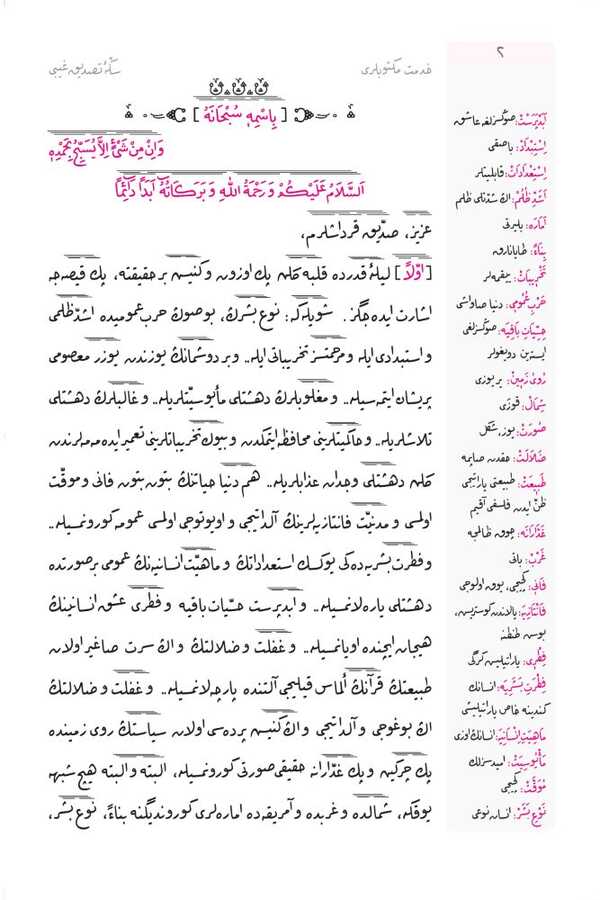 ٢
خدمت مكتوبلرى
سكّهٔ تصديق غيبى
[ بِاسْمِهِ سُبْحَانَهُ ]
وَاِنْ مِنْ شَىْءٍ اِلَّا يُسَبِّحُ بِحَمْدِهِ
اَلسَّلَامُ عَلَيْكُمْ وَ رَحْمَةُ اللّٰهِ وَ بَرَكَاتُهُ اَبَدًا دَائِمًا
عزيز، صدّيق قرداشلرم،
[ اوّلاً ] ليلهٔ قدرده قلبه كلن پك اوزون و كنيش بر حقيقته، پك قيصه جه
اشارت ايده جگز. شويله كه: نوع بشرك، بو صوڭ حرب عموميده اشدّ ظلمى
و استبدادى ايله و مرحمتسز تخريباتى ايله.. و بر دوشمانڭ يوزندن يوزر معصومى
پريشان ايتمه سيله.. و مغلوبلرڭ دهشتلى مأيوسيّتلريله.. و غالبلرڭ دهشتلى
تلاشلريله.. و حاكميتلرينى محافظه ايتمكدن و بيوك تخريباتلرينى تعمير ايده مه مه لرندن
كلن دهشتلى وجدان عذابلريله.. هم دنيا حياتنڭ بتون بتون فانى و موقّت
اولمسى و مدنيّت فانتازيه لرينڭ آلداتيجى و اويوتوجى اولمسى عمومه كورونمسيله..
و فطرت بشريه ده كى يوكسك استعداداتڭ و ماهيّت انسانيه نڭ عمومى بر صورتده
دهشتلى ياره لانمسيله.. و ابدپرست حسّيات باقيه و فطرى عشق انسانينڭ
هيجان ايچنده اويانمسيله.. و غفلت و ضلالتڭ و اڭ سرت صاغير اولان
طبيعتڭ قرآنڭ اَلماس قيلينجى آلتنده پارچه لانمسيله.. و غفلت و ضلالتڭ
اڭ بوغوجى و آلداتيجى و اڭ كنيش پرده سى اولان سياستڭ روى زمينده
پك چركين و پك غدّارانه حقيقى صورتى كورونمسيله، البته و البته هيچ شبهه
يوقكه، شمالده و غربده و آمريقه ده اماره لرى كوروندیگنه بناءً، نوع بشر،
اَبَدْپَرَسْتْ: صوڭسزلغه عاشق
اِسْتِبْدَادْ: باصقى
اِسْتِعْدَادَاتْ: قابليتلر
اَشَدِّ ظُلُمْ: اڭ شدّتلى ظلم
اَمَارَه: بليرتى
بِنَاءً: طايانارق
تَخْرِيبَاتْ: ييقمه لر
حَرْبِ عُمُومِى: دنيا صاواشى
حِسِّيَاتِ بَاقِيَه: صوڭسزلغى
ايسته ين دويغولر
رُوىِ زَمِينْ: ير يوزى
شِمَالْ: قوزى
صُورَتْ: يوز، شكل
ضَلَالَتْ: حقدن صاپمه
طَبِيعَتْ: طبيعتى ياراتيجى
ظنّ ايدن فلسفى آقيم
غَدَّارَانَه: چوق ظالمجه
غَرْبْ: باتى
فَانِى: گچيجى، يوق اولوجى
فَانْتَازِيَه: يالاندن كوستريش،
بوش طنطنه
فِطْرِى: ياراتيليش گرگى
فِطْرَتِ بَشَرِيَه: انسانڭ
كندينه خاص ياراتيليشى
مَاهِيَتِ اِنْسَانِيَه: انسانڭ اوزى
مَأْيُوسِيَتْ: اميدسزلك
مُوَقَّتْ: گچيجى
نَوْعِ بَشَرْ: انسان نوعى